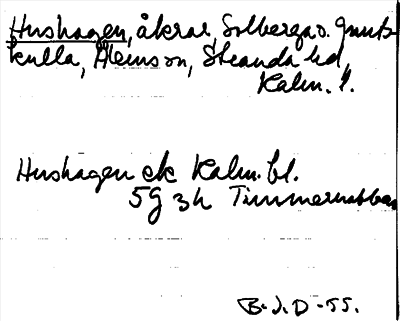 Hushagen, åkrar, Solberga o. Gnuts-
kulla, Ålems sn, Stranda hd,
Kalm. l.
Hushagen ek Kalm. bl.
5G 3h Timmernabben
B.J.D -55.